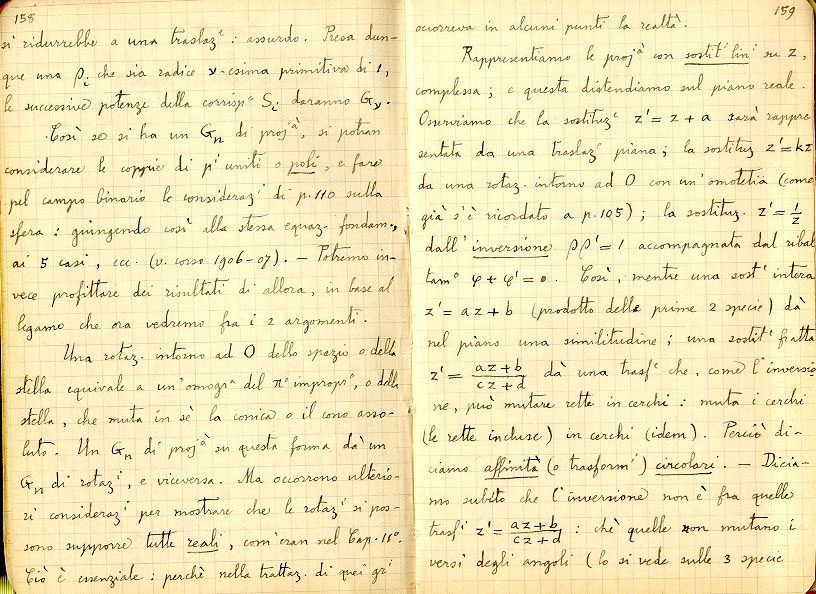 158
si ridurrebbe a una traslaz.ᵉ : assurdo. Presa dun-
que una ρᵢ che sia radice ν-esima primitiva di 1,
le successive potenze della corrispᵃ Sᵢ daranno Gᵥ.
Così se si ha un Gₙ di projᵃ, si potran
considerare le coppie di pⁱ uniti o poli, e fare
pel campo binario le considerazⁱ di p. 110 sulla
sfera : giungendo così alla stessa equaz. fondam.,
ai 5 casi, ecc. (v. corso 1906-07). — Potremo in-
vece profittare dei risultati di allora, in base al
legame che ora vedremo fra i 2 argomenti.
Una rotaz. intorno ad O dello spazio o della
stella equivale a un'omogᵃ del πᵒ impropᵒ, o della
stella, che muta in sè la conica o il cono asso-
luto. Un Gₙ di projᵃ su questa forma dà un
Gₙ di rotazⁱ, e viceversa. Ma occorrono ulterio-
ri considerazⁱ per mostrare che le rotazⁱ si pos-
sono supporre tutte reali, com'eran nel Cap. IIᵒ.
Ciò è essenziale : perchè nella trattaz. di quei grⁱ
159
occorreva in alcuni punti la realtà.
Rappresentiamo le projᵃ con sostitⁱ linⁱ su z,
complessa; e questa distendiamo sul piano reale.
Osserviamo che la sostituzᵉ z' = z + a sarà rappre
sentata da una traslazᵉ piana; la sostituz. z' = kz
da una rotaz. intorno ad O con un'omotetia (come
già s'è ricordato a p. 105); la sostituz. z' = 1/z
dall'inversione ρρ' = 1 accompagnata dal ribal
tamᵒ φ + φ' = 0. Così, mentre una sostᵉ intera
z' = az + b (prodotto delle prime 2 specie) dà
nel piano una similitudine; una sostitᵉ fratta
z' = az+b / cz+d dà una trasfᵉ che, come l'inversio
ne, può mutare rette in cerchi : muta i cerchi
(le rette incluse) in cerchi (idem). Perciò di-
ciamo affinità (o trasformⁱ) circolari. — Dicia-
mo subito che l'inversione non è fra quelle
trasfⁱ z' = az+b / cz+d : chè quelle non mutano i
versi degli angoli (lo si vede sulle 3 specie